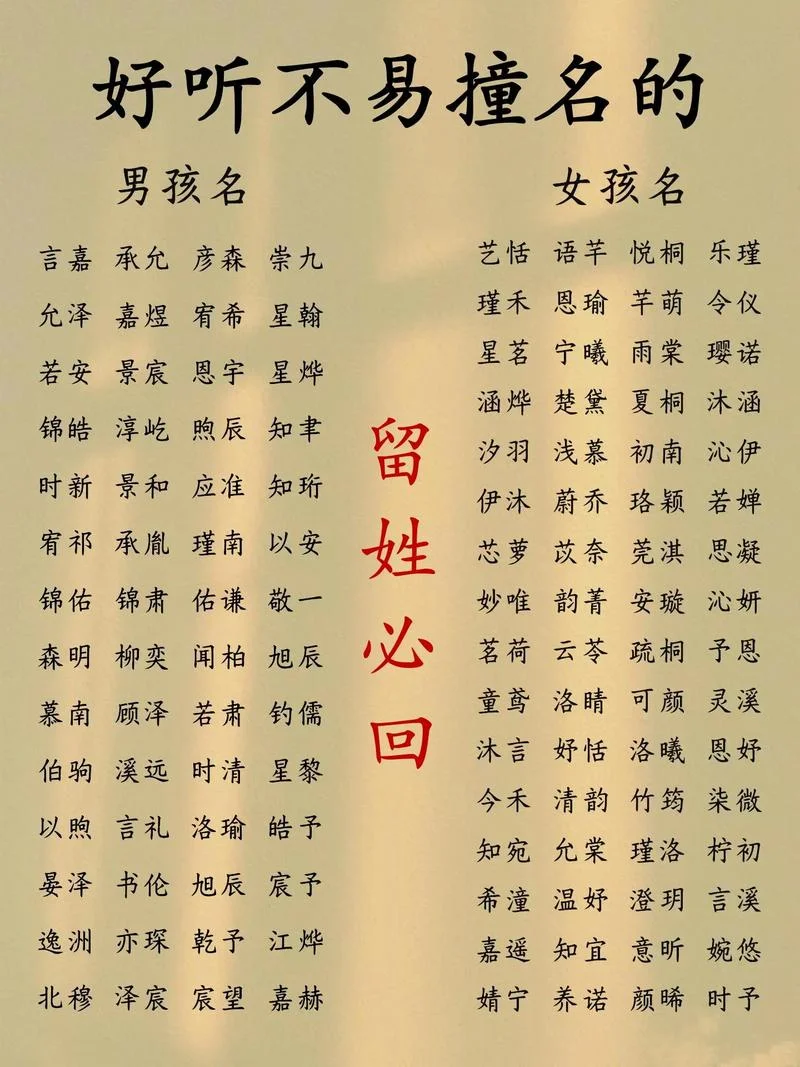 好听不易撞名的
男孩名
言嘉 承允 彦森 崇九
允泽 嘉煜 宥希 星翰
若安 景宸 恩宇 星烨
锦皓 淳屹 煦辰 知聿
时新 景和 应准 知珩
宥祁 承胤 瑾南 以安
锦佑 锦肃 佑谦 敬一
森明 柳奕 闻柏 旭辰
慕南 顾泽 若肃 钓儒
伯驹 溪远 时清 星黎
以煦 言礼 洛瑜 皓予
晏泽 书伦 旭辰 宸予
逸洲 亦琛 乾予 江烨
北穆 泽宸 宸望 嘉赫
留姓必回
女孩名
艺恬 语芊 悦桐 乐瑾
瑾禾 恩瑜 芊萌 令仪
星茗 宁曦 雨棠 璎诺
涵烨 楚黛 夏桐 沐涵
汐羽 浅慕 初南 沁伊
伊沐 蔚乔 珞颖 若婵
芯萝 苡奈 莞淇 思凝
妙唯 韵菁 安璇 沁妍
茗荷 云苓 疏桐 予恩
童鸢 洛晴 可颜 灵溪
沐言 妤恬 洛曦 恩妤
今禾 清韵 竹筠 柒微
知宛 允棠 瑾洛 柠初
希潼 温妤 澄玥 言溪
嘉遥 知宜 意昕 婉悠
婧宁 养诺 颜晞 时予